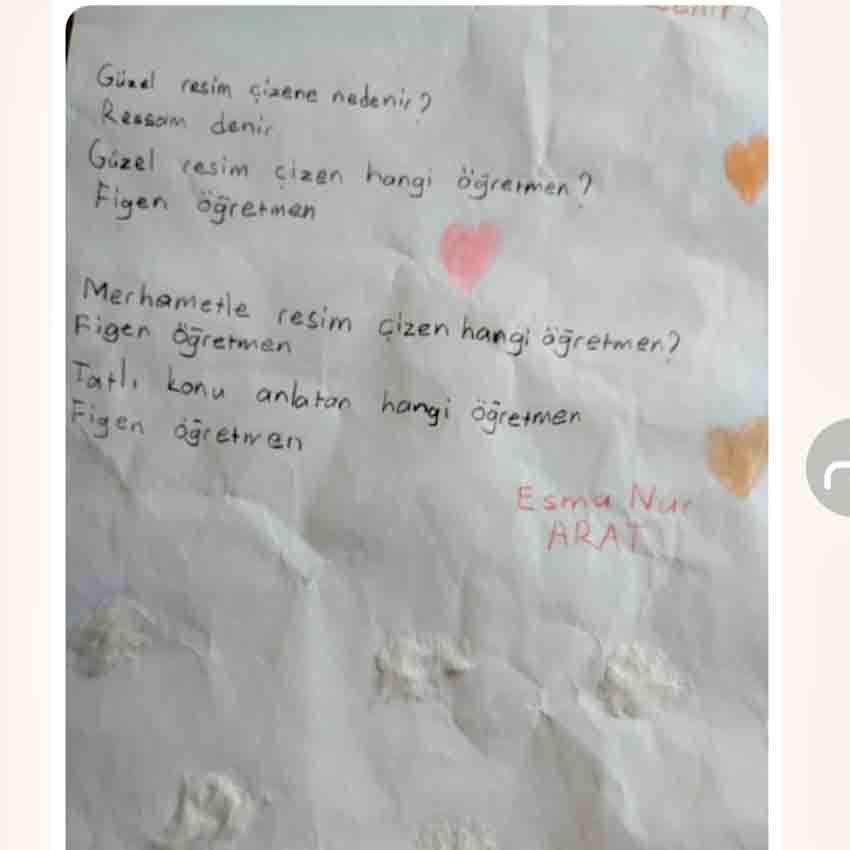 Güzel resim çizene nedenir?
Ressam denir
Güzel resim çizen hangi öğretmen?
Figen öğretmen
Merhametle resim çizen hangi öğretmen?
Figen öğretmen
Tatlı konu anlatan hangi öğretmen
Figen öğretmen
Esma Nur
ARAT